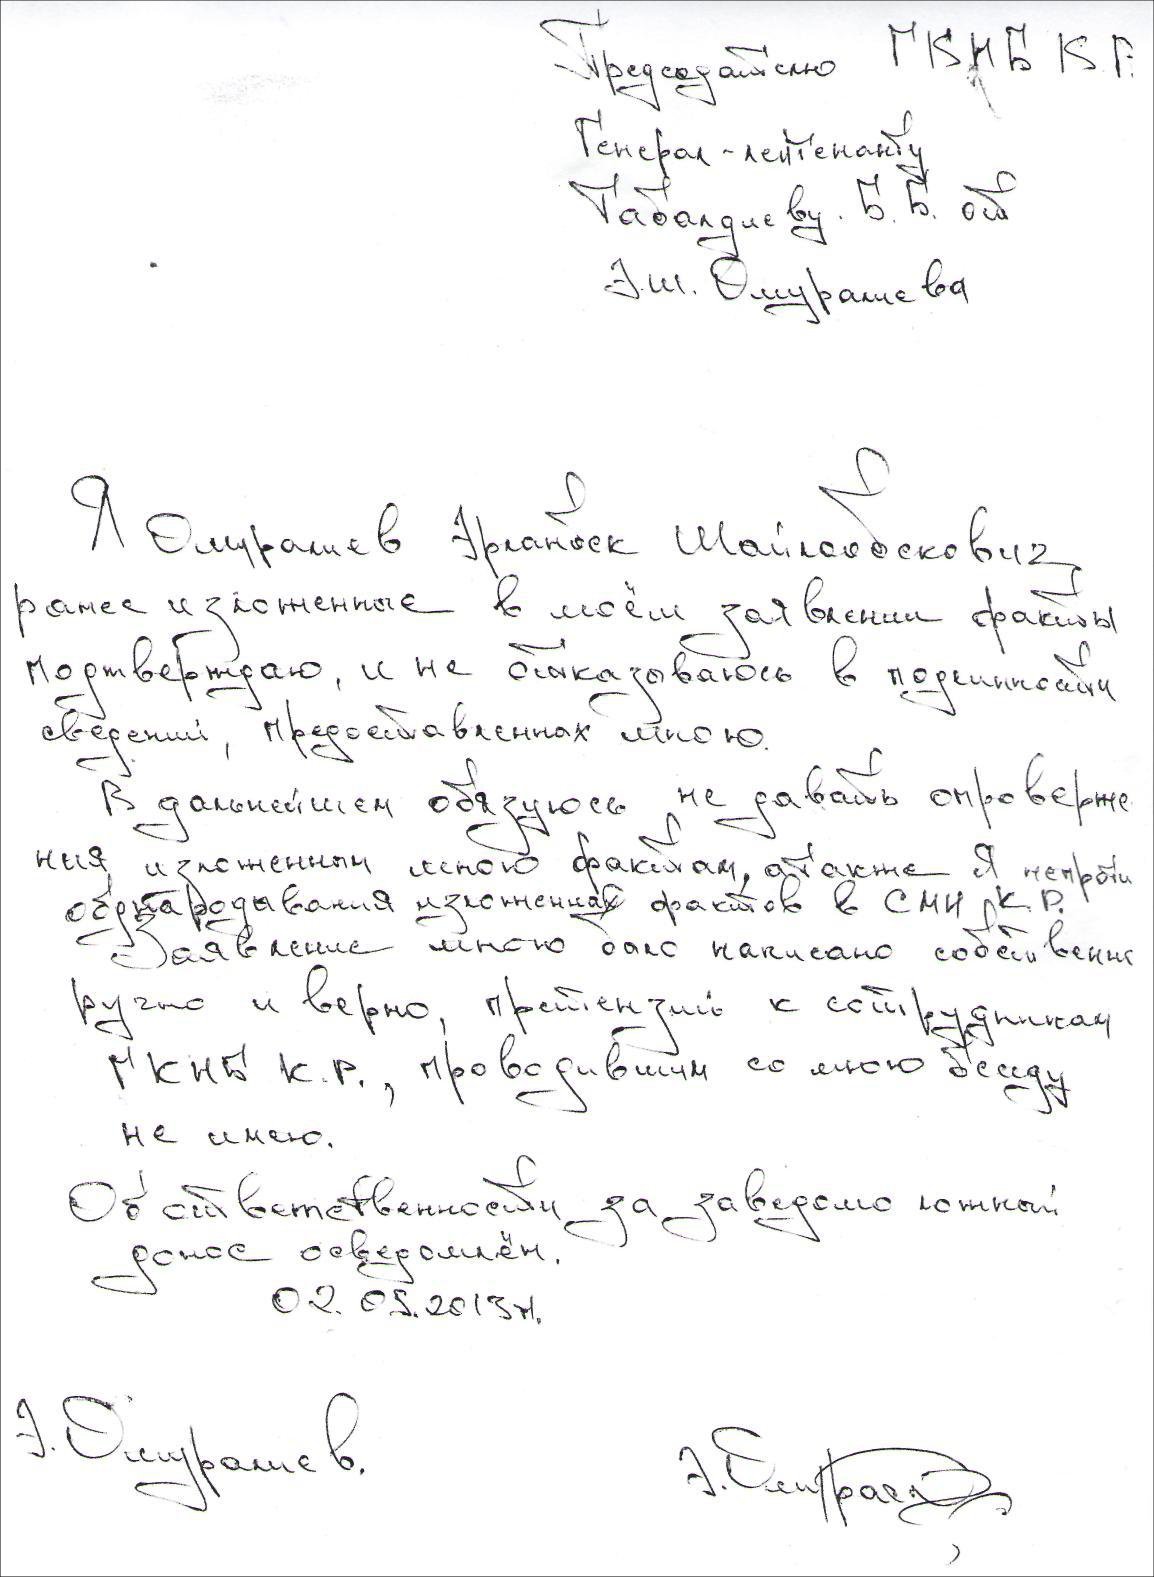 Председателю ГКНБ К.Р.
Генерал-лейтенанту
Табалдиеву. Б.Б. от
Э.Ш. Омуралиева
Я Омуралиев Эрланбек Шайлообекович
ранее изложенные в моём заявлении факты
подтверждаю, и не отказываюсь в подлинности
сведений, предоставленных мною.
В дальнейшем обязуюсь не давать опроверже
ния, изложенным мною фактам, а также я непроти
обднародывания изложенных фактов в СМИ К.Р.
Заявление мною было написано собственно
ручно и верно, претензий к сотрудникам
ГКНБ К.Р., проводившим со мною беседу
не имею.
Об ответственности за заведомо ложный
донос осведомлён.
02.05.2013г.
Э. Омуралиев.
Э.